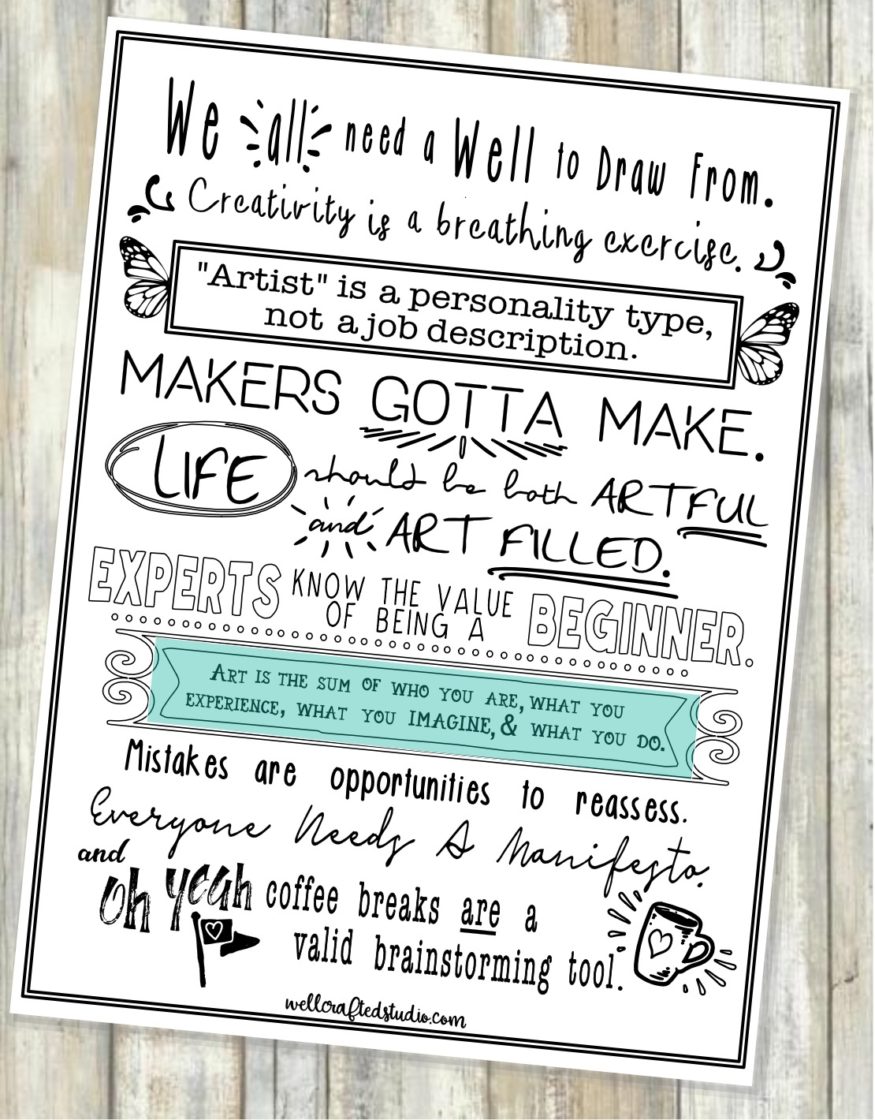 We all need a Well to Draw From.
Creativity is a breathing exercise.
"Artist" is a personality type,
not a job description.
MAKERS GOTTA MAKE.
LIFE should be both ARTFUL
and ART FILLED.
EXPERTS KNOW THE VALUE
OF BEING A BEGINNER.
ART IS THE SUM OF WHO YOU ARE, WHAT YOU
EXPERIENCE, WHAT YOU IMAGINE, & WHAT YOU DO.
Mistakes are opportunities to reassess.
Everyone Needs A Manifesto.
and
Oh yeah coffee breaks are a
valid brainstorming tool.
wellcraftedstudio.com